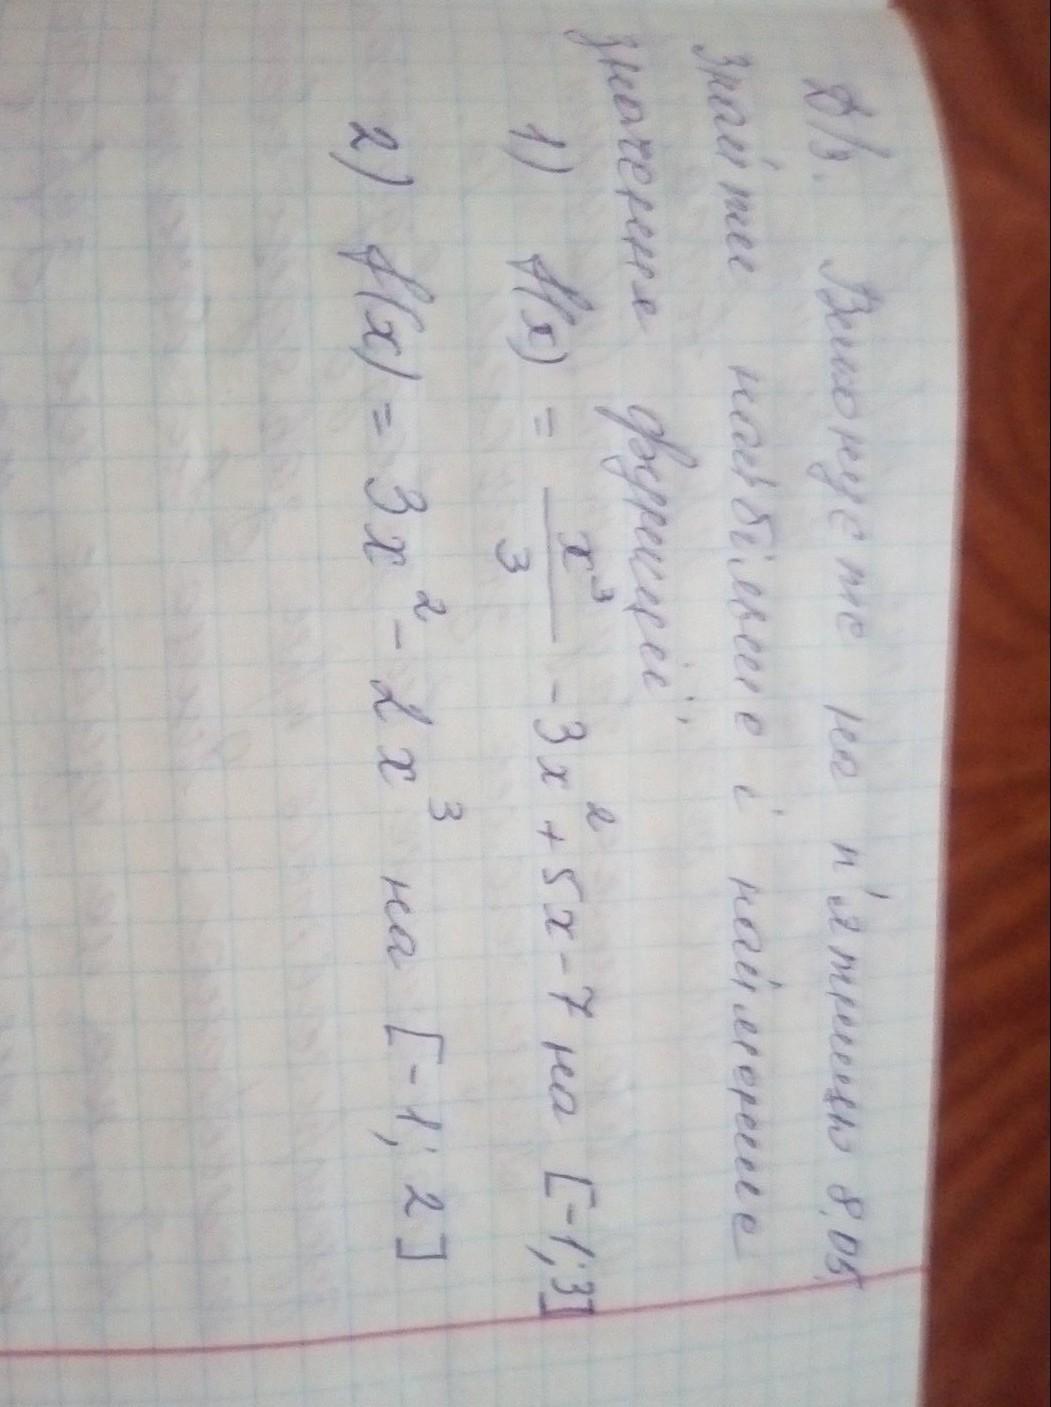 Д/з. Виконуєте на п'ятницю 8,05
Знайти найбільше і найменше
значення функції:
1) f(x) = x³/3 - 3x² + 5x - 7 на [-1; 3]
2) f(x) = 3x² - 2x³ на [-1; 2]